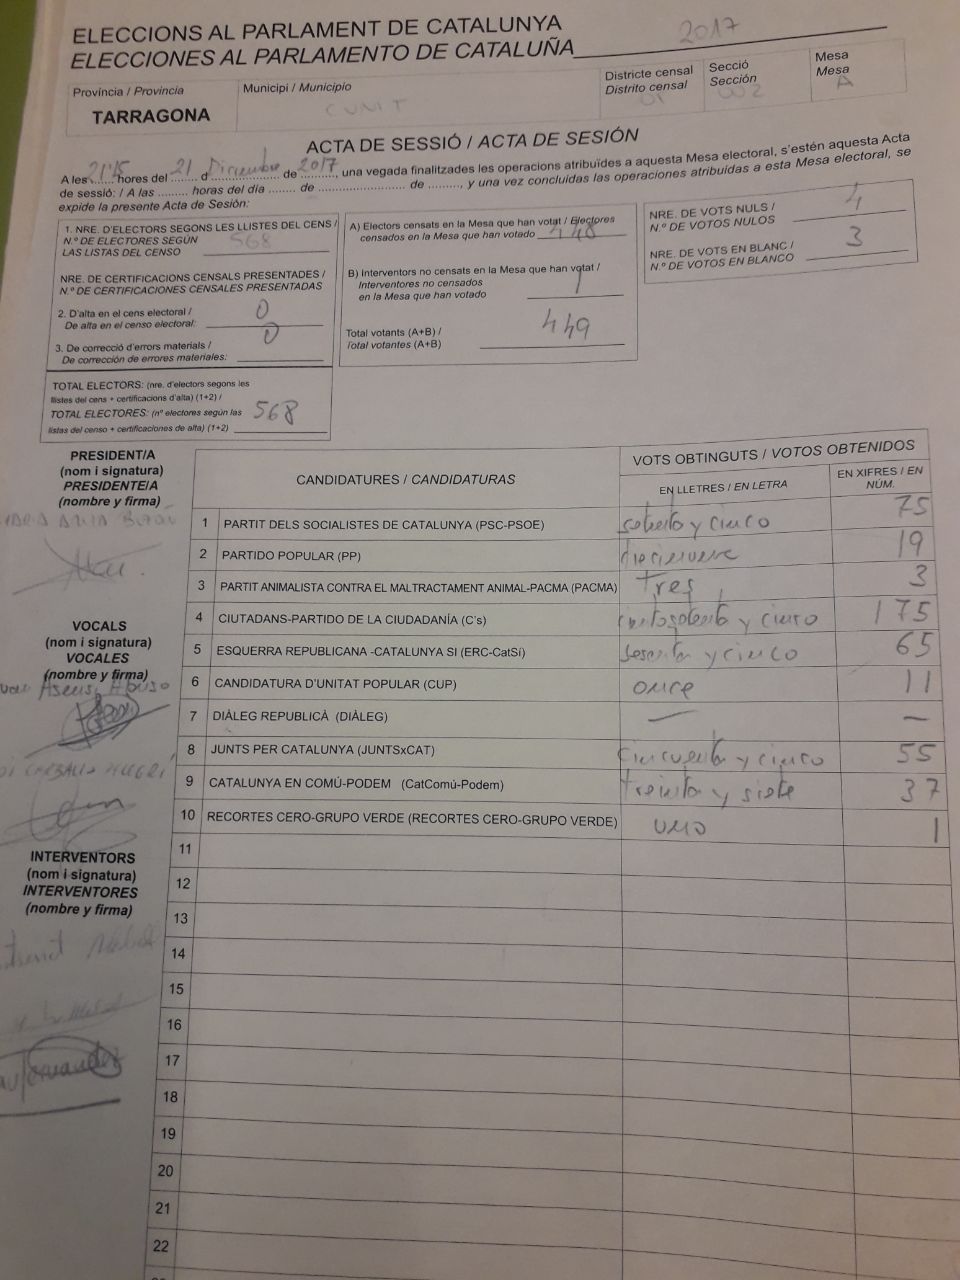 ELECCIONS AL PARLAMENT DE CATALUNYA
ELECCIONES AL PARLAMENTO DE CATALUÑA 2017
Província / Provincia
TARRAGONA
Municipi / Municipio
CUNIT
Districte censal
Distrito censal
01
Secció
Sección
002
Mesa
Mesa
A
ACTA DE SESSIÓ / ACTA DE SESIÓN
A les 21'15 hores del 21 d Diciembre de 2017, una vegada finalitzades les operacions atribuïdes a aquesta Mesa electoral, s'estén aquesta Acta
de sessió: / A las ......... horas del día ....... de ...................... de ........, y una vez concluidas las operaciones atribuidas a esta Mesa electoral, se
expide la presente Acta de Sesión:
1. NRE. D'ELECTORS SEGONS LES LLISTES DEL CENS /
N.º DE ELECTORES SEGÚN
LAS LISTAS DEL CENSO 568
NRE. DE CERTIFICACIONS CENSALS PRESENTADES /
N.º DE CERTIFICACIONES CENSALES PRESENTADAS
2. D'alta en el cens electoral /
De alta en el censo electoral: 0
3. De correcció d'errors materials /
De corrección de errores materiales: 0
TOTAL ELECTORS: (nre. d'electors segons les
llistes del cens + certificacions d'alta) (1+2) /
TOTAL ELECTORES: (nº electores según las
listas del censo + certificaciones de alta) (1+2) 568
A) Electors censats en la Mesa que han votat / Electores
censados en la Mesa que han votado 448
B) Interventors no censats en la Mesa que han votat /
Interventores no censados
en la Mesa que han votado 1
Total votants (A+B) /
Total votantes (A+B) 449
NRE. DE VOTS NULS /
N.º DE VOTOS NULOS 4
NRE. DE VOTS EN BLANC /
N.º DE VOTOS EN BLANCO 3
PRESIDENT/A
(nom i signatura)
PRESIDENTE/A
(nombre y firma)
VOCALS
(nom i signatura)
VOCALES
(nombre y firma)
INTERVENTORS
(nom i signatura)
INTERVENTORES
(nombre y firma)
CANDIDATURES / CANDIDATURAS
VOTS OBTINGUTS / VOTOS OBTENIDOS
EN LLETRES / EN LETRA
EN XIFRES / EN
NÚM.
1 PARTIT DELS SOCIALISTES DE CATALUNYA (PSC-PSOE) setenta y cinco 75
2 PARTIDO POPULAR (PP) diecinueve 19
3 PARTIT ANIMALISTA CONTRA EL MALTRACTAMENT ANIMAL-PACMA (PACMA) tres 3
4 CIUTADANS-PARTIDO DE LA CIUDADANÍA (C's) y cinco 175
5 ESQUERRA REPUBLICANA -CATALUNYA SI (ERC-CatSí) sesenta y cinco 65
6 CANDIDATURA D'UNITAT POPULAR (CUP) once 11
7 DIÀLEG REPUBLICÀ (DIÀLEG) — —
8 JUNTS PER CATALUNYA (JUNTSxCAT) cincuenta y cinco 55
9 CATALUNYA EN COMÚ-PODEM (CatComú-Podem) treinta y siete 37
10 RECORTES CERO-GRUPO VERDE (RECORTES CERO-GRUPO VERDE) uno 1
11
12
13
14
15
16
17
18
19
20
21
22